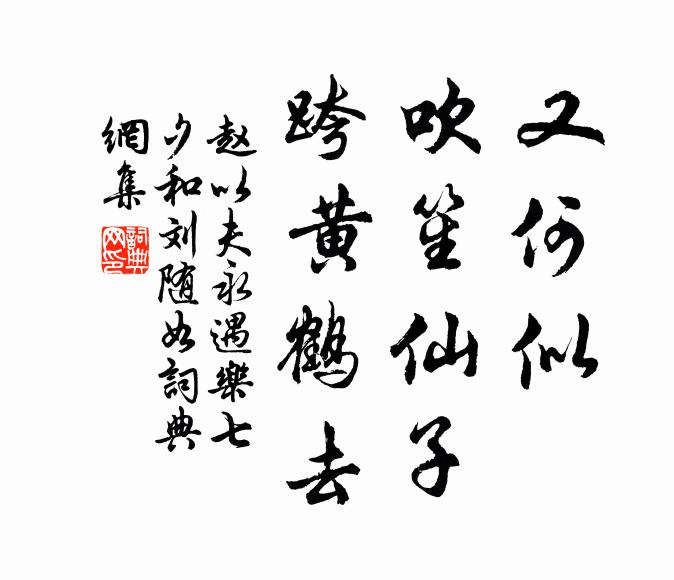 又何似
吹笙仙子
跨黄鹤去
赵以夫永遇樂七
夕和刘随如詞典
網集
詞典
网印